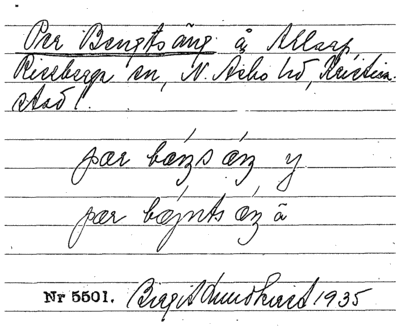 Per Bengts äng å Allarp,
Riseberga sn, N. Åsbo hd, Kristian-
stad l.
pær bæŋs æŋ y
pær bæjnts æŋ å
Nr 5501. Birgit Lundkvist 1935